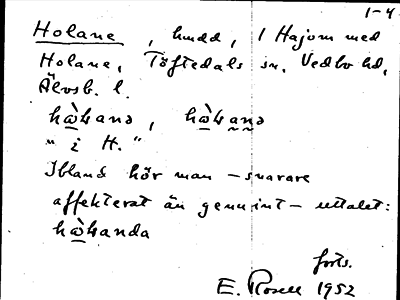 1-4
Holane, hmdd, 1 Hajom med
Holane, Töftedals sn, Vedbo hd,
Älvsb. l.
hὼɬanə, hὼɬan̰ə
" i H."
Ibland hör man – snarare
affekterat än genuint – uttalet:
hὼɬanda
forts.
E. Rosell 1952